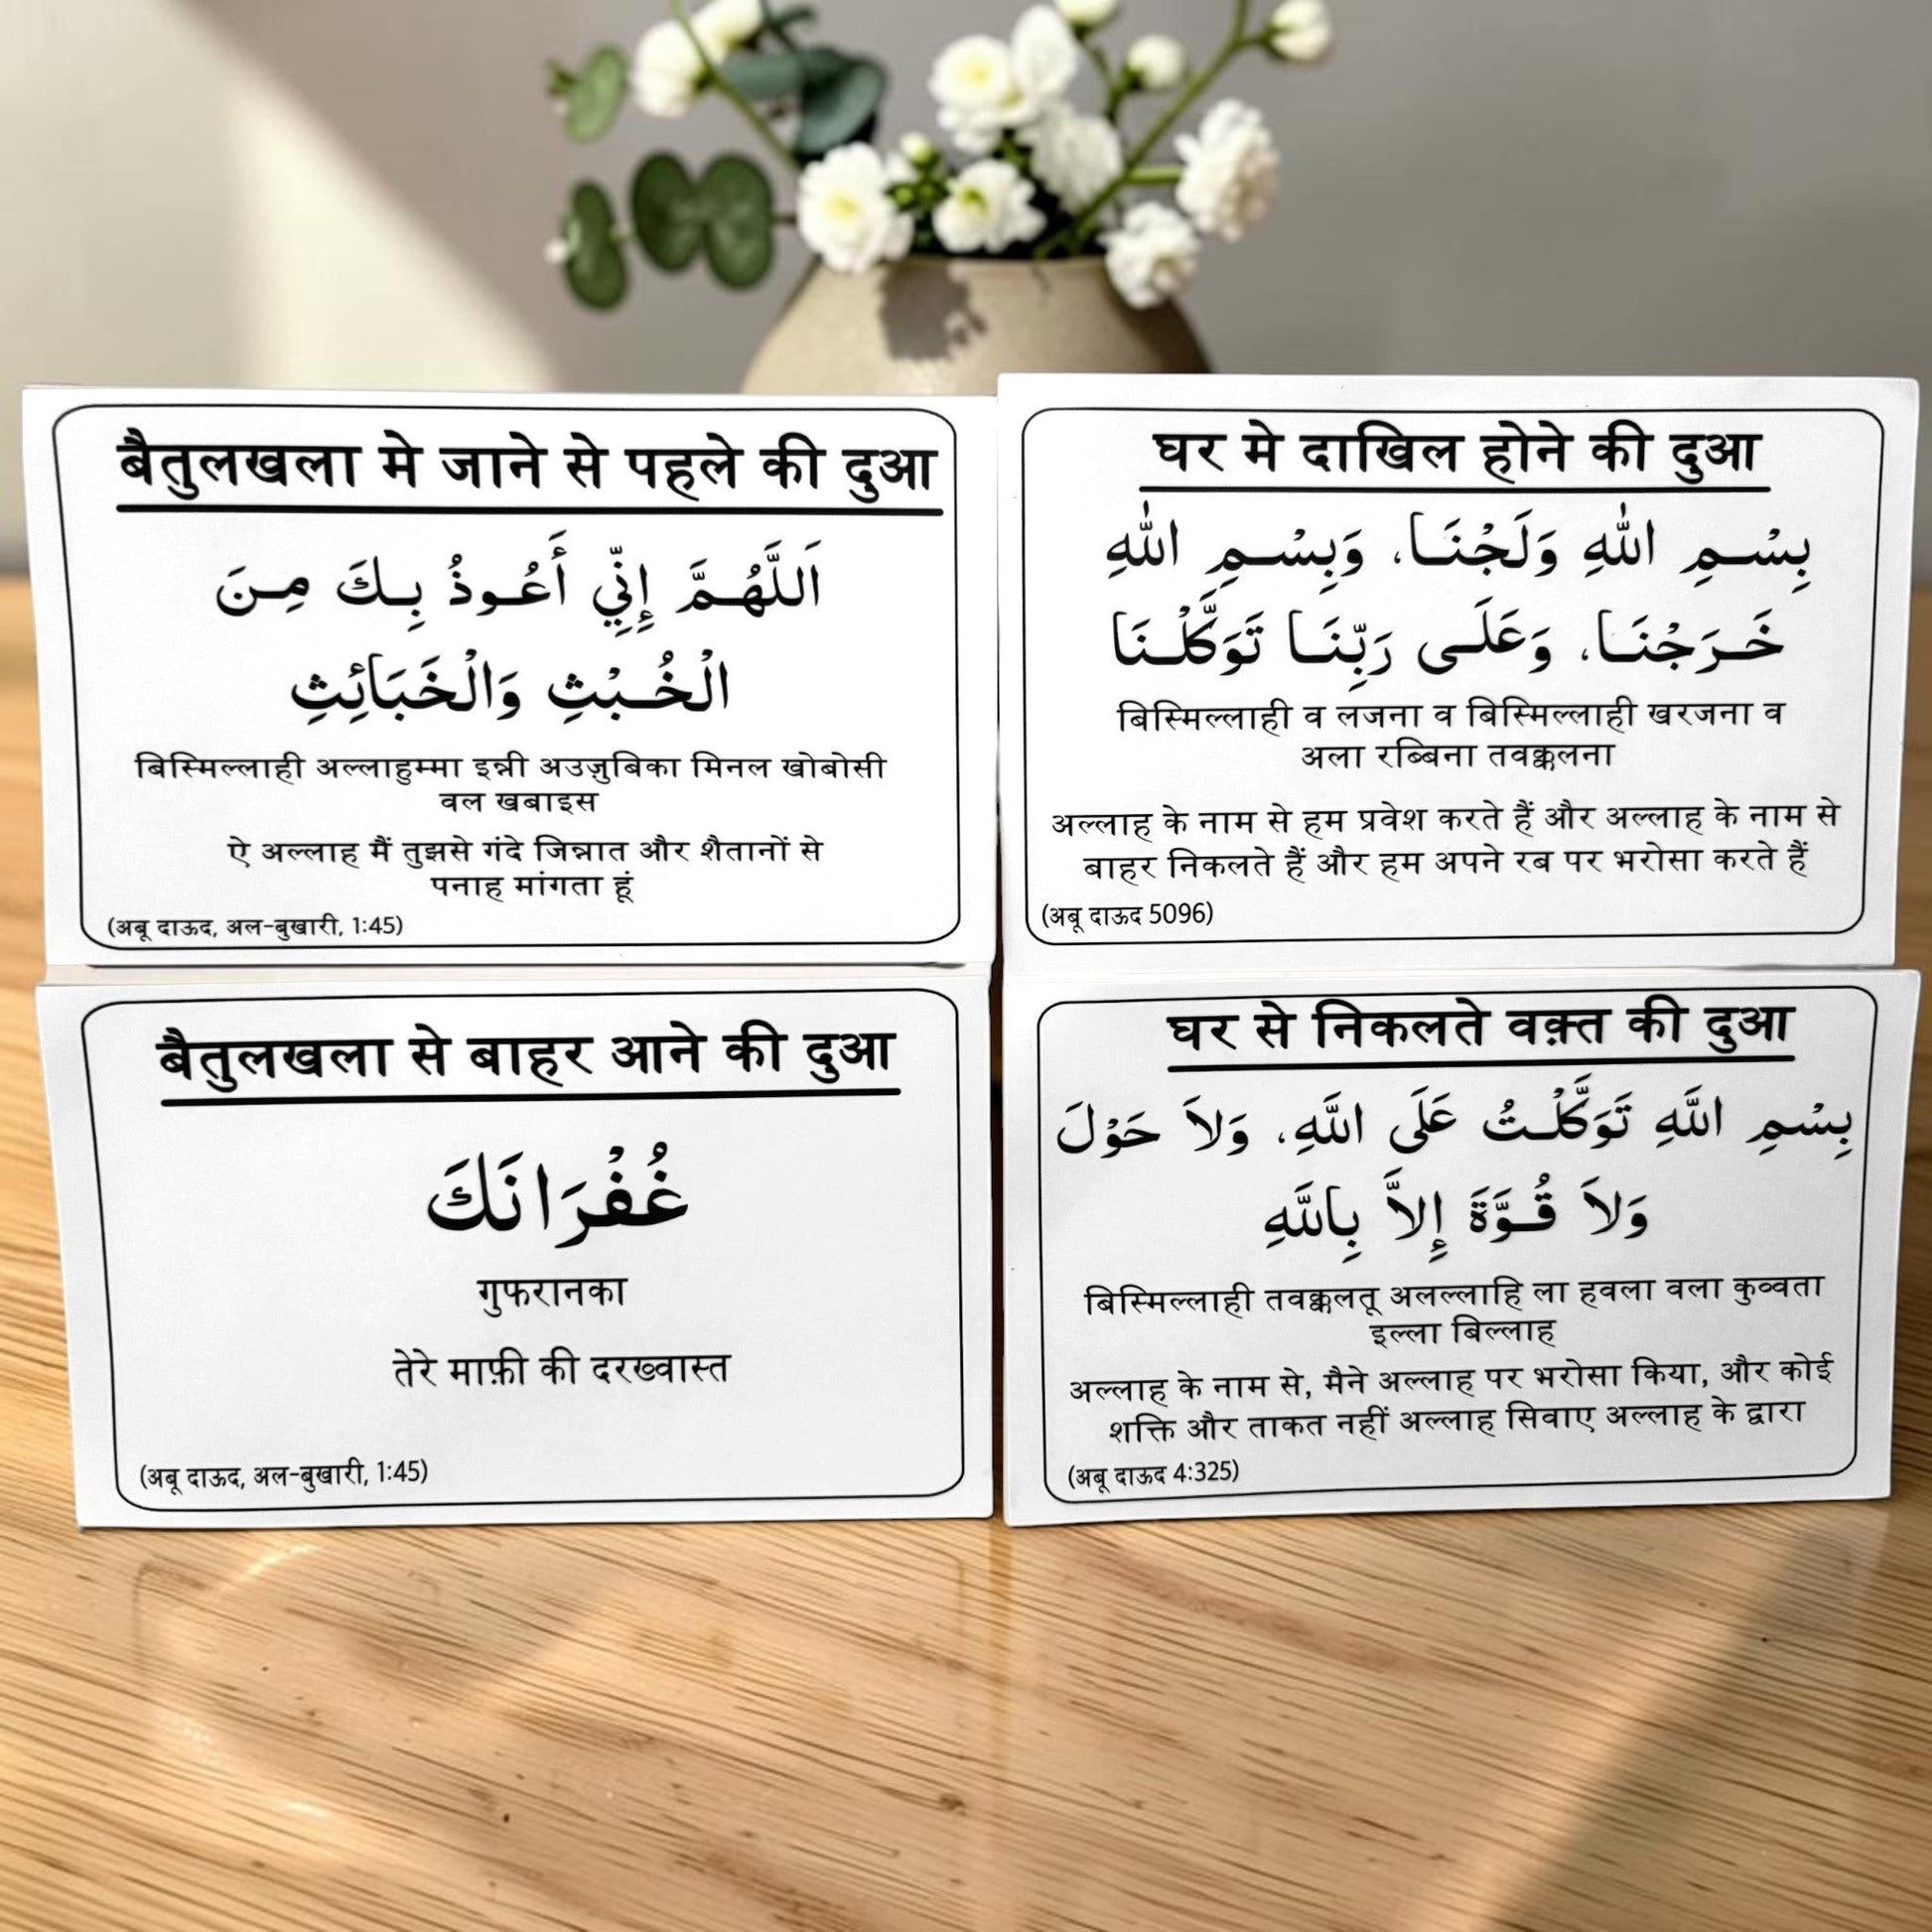 बैतुलखला मे जाने से पहले की दुआ
اَللَّهُمَّ إِنِّي أَعُوذُ بِكَ مِنَ
الْخُبْثِ وَالْخَبَائِثِ
बिस्मिल्लाही अल्लाहुम्मा इन्नी अउज़ुबिका मिनल खोबोसी
वल खबाइस
ऐ अल्लाह मैं तुझसे गंदे जिन्नात और शैतानों से
पनाह मांगता हूं
(अबू दाऊद, अल-बुखारी, 1:45)
घर मे दाखिल होने की दुआ
بِسْمِ اللهِ وَلَجْنَا، وَبِسْمِ اللهِ
خَرَجْنَا، وَعَلَى رَبِّنَا تَوَكَّلْنَا
बिस्मिल्लाही व लजना व बिस्मिल्लाही खरजना व
अला रब्बिना तवक्कलना
अल्लाह के नाम से हम प्रवेश करते हैं और अल्लाह के नाम से
बाहर निकलते हैं और हम अपने रब पर भरोसा करते हैं
(अबू दाऊद 5096)
बैतुलखला से बाहर आने की दुआ
غُفْرَانَكَ
गुफरानका
तेरे माफ़ी की दरख्वास्त
(अबू दाऊद, अल-बुखारी, 1:45)
घर से निकलते वक़्त की दुआ
بِسْمِ اللَّهِ تَوَكَّلْتُ عَلَى اللَّهِ، وَلاَ حَوْلَ
وَلاَ قُوَّةَ إِلاَّ بِاللَّهِ
बिस्मिल्लाही तवक्कलतू अलल्लाहि ला हवला वला कुव्वता
इल्ला बिल्लाह
अल्लाह के नाम से, मैने अल्लाह पर भरोसा किया, और कोई
शक्ति और ताकत नहीं अल्लाह सिवाए अल्लाह के द्वारा
(अबू दाऊद 4:325)